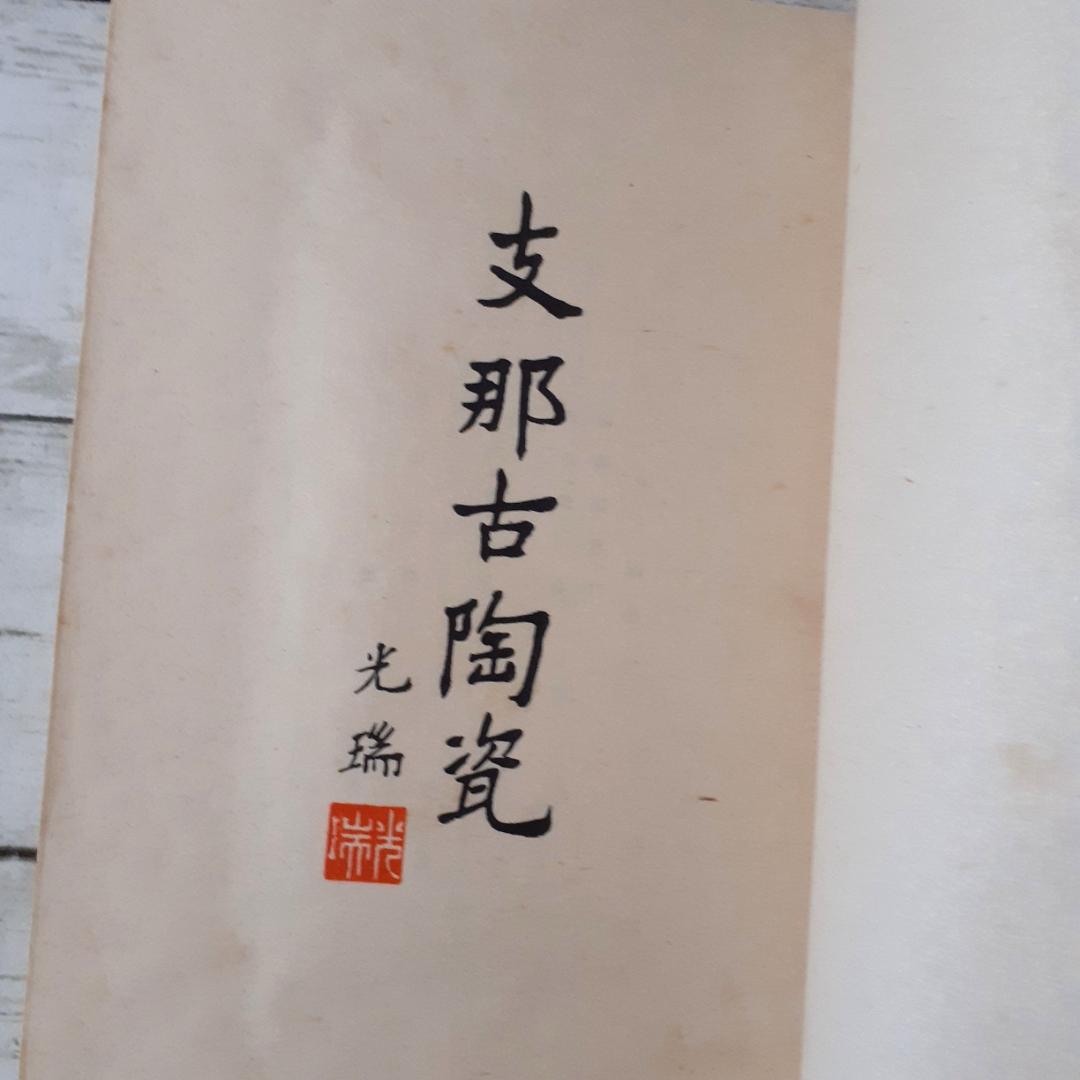 支那古陶瓷
光瑞
光瑞